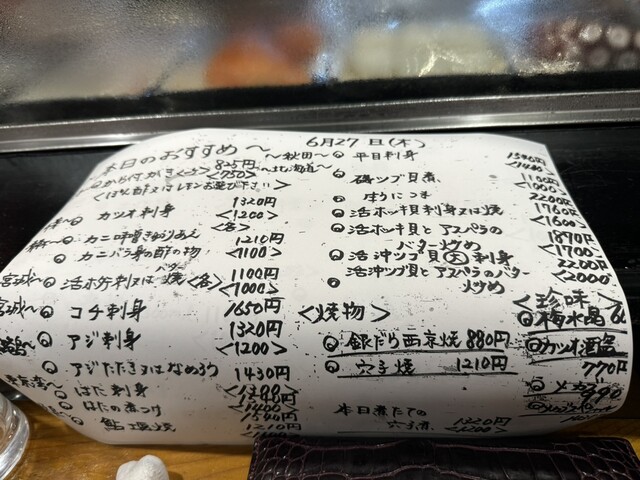 6月27日(木)
本日のおすすめ〜
825円
<750>
<ぽん酢又はレモンお選び下さい>
カツオ刺身
1320円
<1200>
<各>
カニ味噌きゅうりあえ
1210円
カニバラ身の酢の物
<1100>
宮城〜
活ホヤ刺又は
焼<各>
1100円
<1000>
宮城〜
コチ刺身
1650円
アジ刺身
1320円
<1200>
アジたたき又はなめろう
1430円
はた刺身
はたの煮つけ
<1400>
鮎塩焼
1210円
〜秋田〜
平目刺身
〜北海道〜
磯ツブ貝煮
1100円
<1000>
2200円
活ホッキ貝刺身又は焼
1760円
<1600>
活ホッキ貝とアスパラの
バター炒め
1870円
<1700>
活沖ツブ貝大刺身
2200円
活沖ツブ貝とアスパラのバター
炒め
<2000>
<焼物>
銀だら西京焼 880円
穴子焼 1210円
本日煮たての
穴子煮
1320円
<1200>
<珍味>
カツオ酒盗
770円